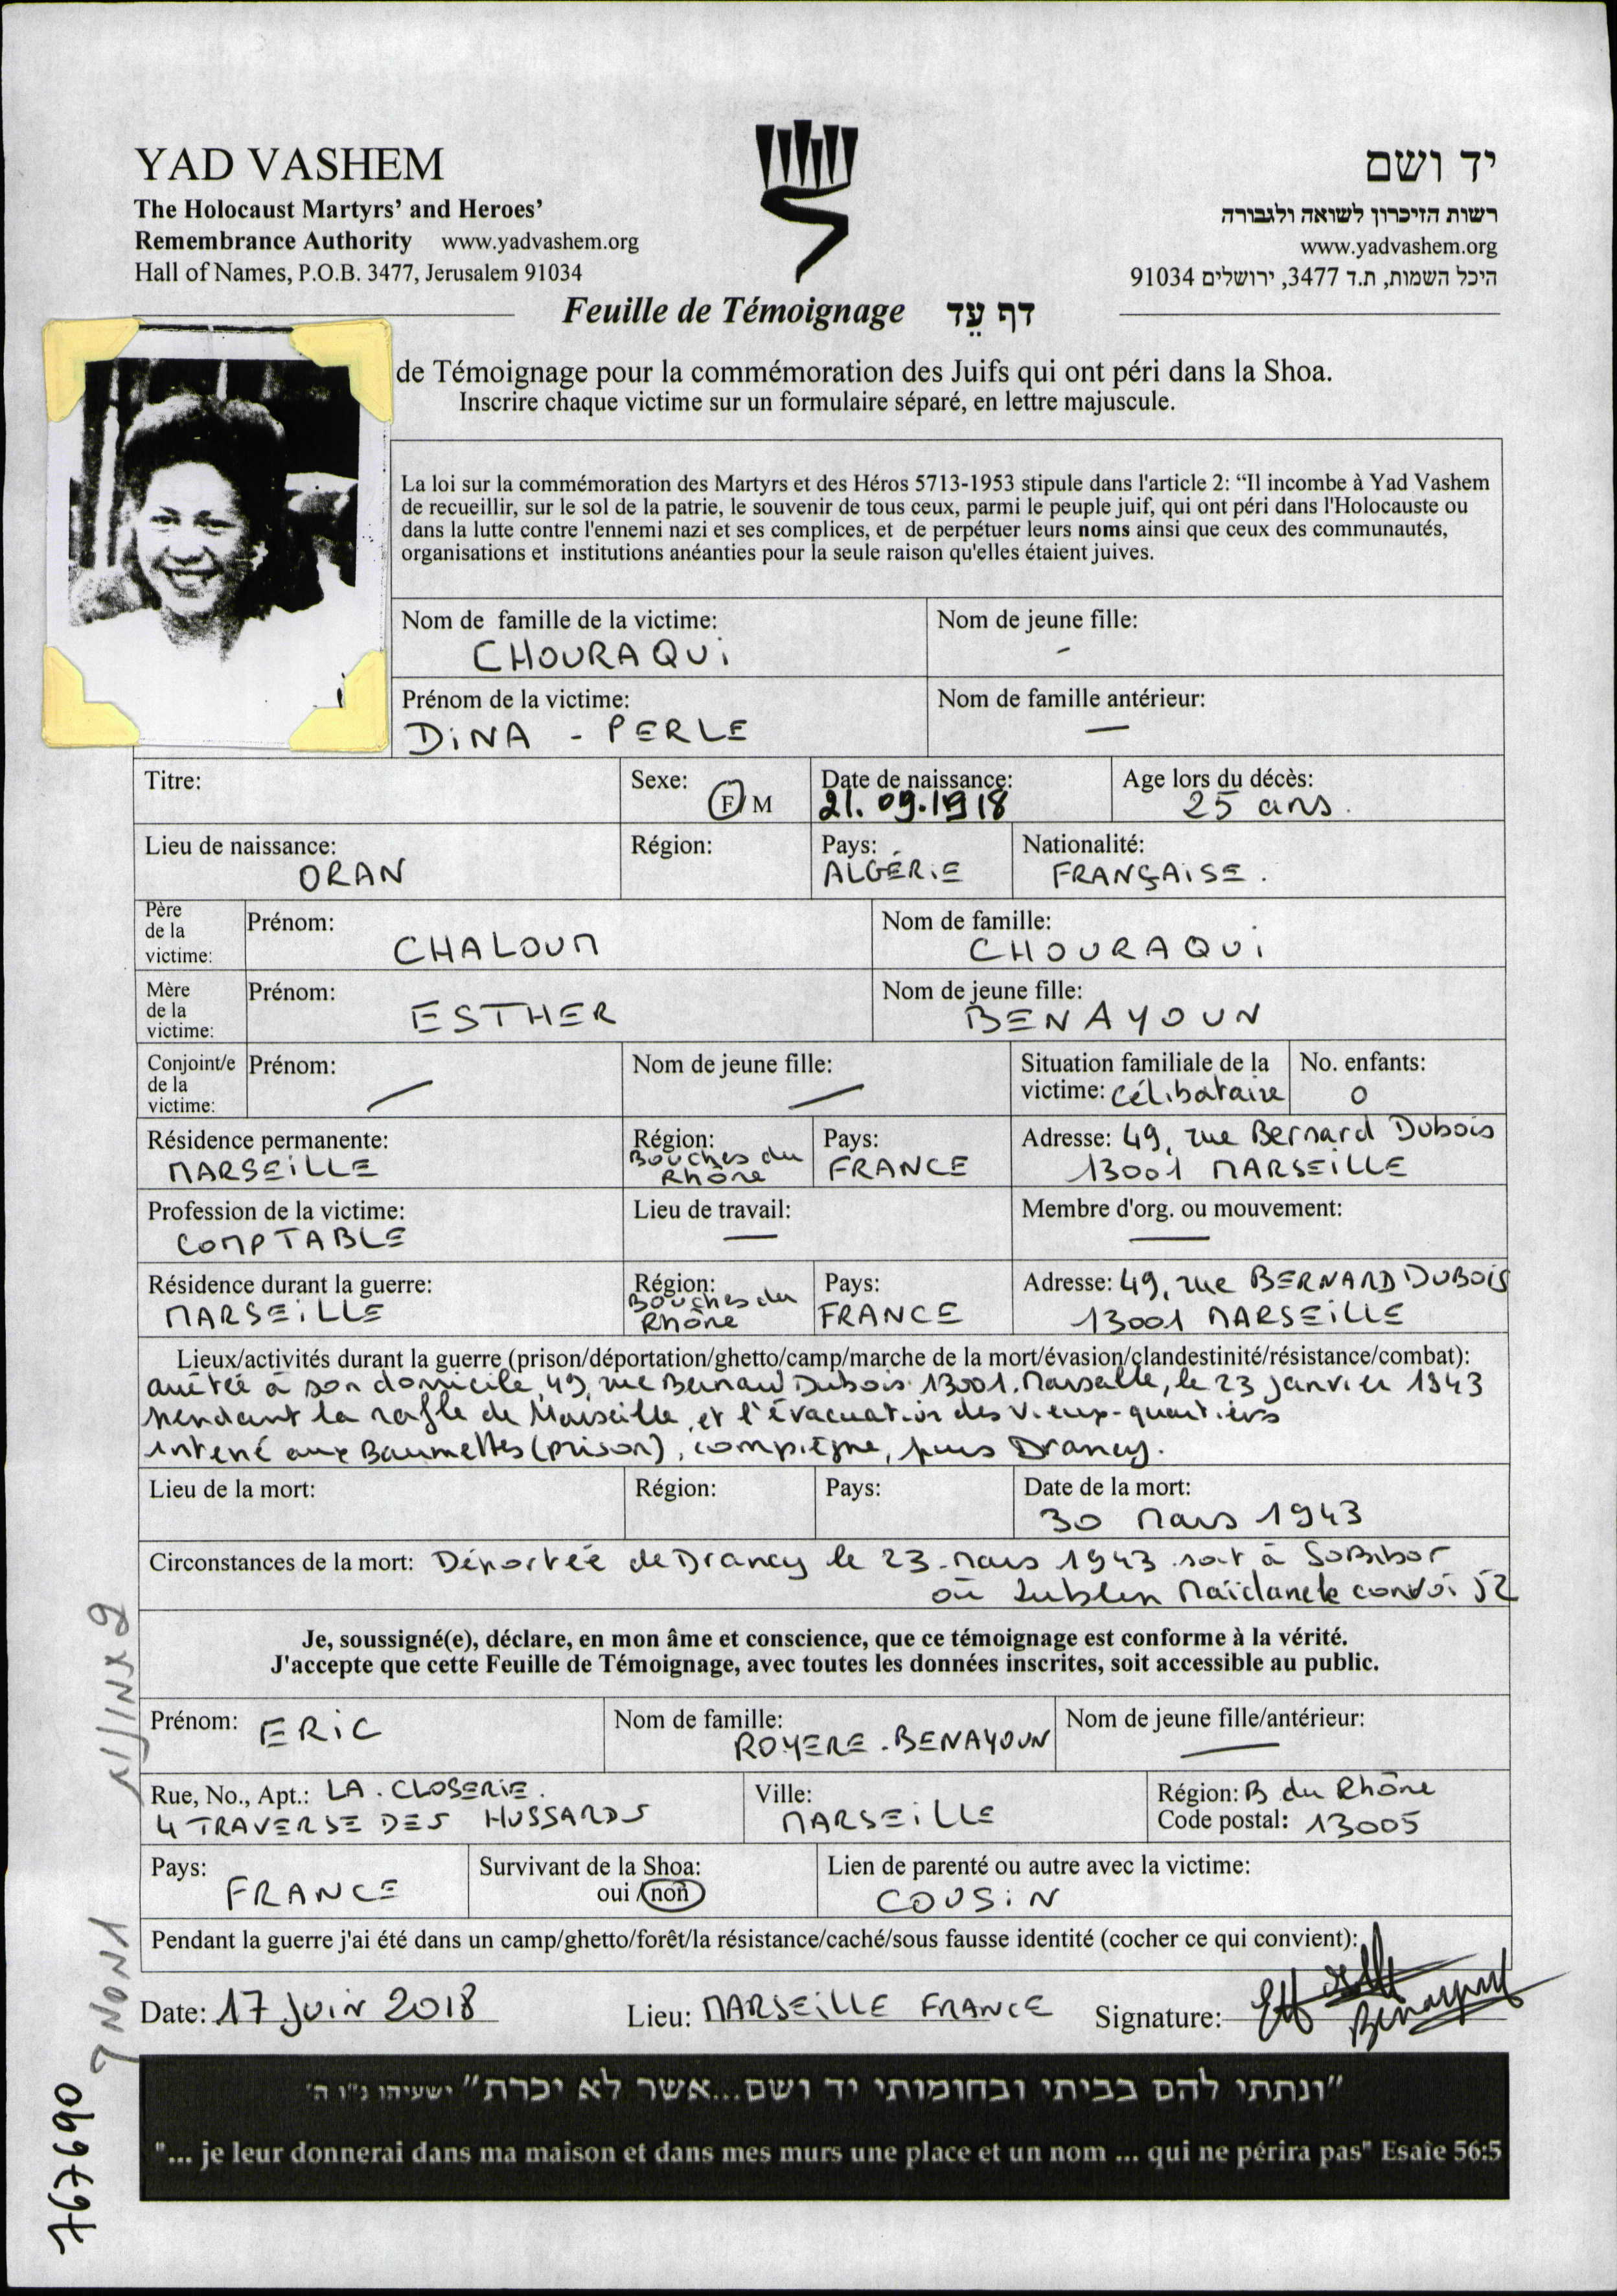 YAD VASHEM
The Holocaust Martyrs' and Heroes'
Remembrance Authority www.yadvashem.org
Hall of Names, P.O.B. 3477, Jerusalem 91034
יד ושם
רשות הזיכרון לשואה ולגבורה
www.yadvashem.org
היכל השמות, ת.ד 3477, ירושלים 91034
Feuille de Témoignage דף עֵד
de Témoignage pour la commémoration des Juifs qui ont péri dans la Shoa.
Inscrire chaque victime sur un formulaire séparé, en lettre majuscule.
La loi sur la commémoration des Martyrs et des Héros 5713-1953 stipule dans l'article 2: “Il incombe à Yad Vashem
de recueillir, sur le sol de la patrie, le souvenir de tous ceux, parmi le peuple juif, qui ont péri dans l'Holocauste ou
dans la lutte contre l'ennemi nazi et ses complices, et de perpétuer leurs noms ainsi que ceux des communautés,
organisations et institutions anéanties pour la seule raison qu'elles étaient juives.
Nom de famille de la victime: Nom de jeune fille:
CHOURAQUI -
Prénom de la victime: Nom de famille antérieur:
DINA - PERLE —
Titre: Sexe: F/M Date de naissance: Age lors du décès:
21.09.1918 25 ans.
Lieu de naissance: Région: Pays: Nationalité:
ORAN ALGÉRIE FRANÇAISE.
Père de la victime: Prénom: Nom de famille:
CHALOUM CHOURAQUI
Mère de la victime: Prénom: Nom de jeune fille:
ESTHER BENAYOUN
Conjoint/e de la victime: Prénom: Nom de jeune fille: Situation familiale de la victime: célibataire No. enfants:
0
Résidence permanente: Région: Pays: Adresse: 49, rue Bernard Dubois
MARSEILLE Bouches du Rhône FRANCE 13001 MARSEILLE
Profession de la victime: Lieu de travail: Membre d'org. ou mouvement:
COMPTABLE — —
Résidence durant la guerre: Région: Pays: Adresse: 49, rue BERNARD DUBOIS
MARSEILLE Bouches du Rhône FRANCE 13001 MARSEILLE
Lieux/activités durant la guerre (prison/déportation/ghetto/camp/marche de la mort/évasion/clandestinité/résistance/combat):
arrêtée à son domicile, 49, rue Bernard Dubois 13001. Marseille, le 23 janvier 1943
pendant la rafle de Marseille et l'évacuation des vieux-quartiers
interné aux Baumettes (prison), compiègne, puis Drancy.
Lieu de la mort: Région: Pays: Date de la mort:
30 Mars 1943
Circonstances de la mort: Déportée de Drancy le 23 mars 1943 soit à Sobibor
ou Lublin Maïdanek convoi 52
Je, soussigné(e), déclare, en mon âme et conscience, que ce témoignage est conforme à la vérité.
J'accepte que cette Feuille de Témoignage, avec toutes les données inscrites, soit accessible au public.
Prénom: ERIC Nom de famille: Nom de jeune fille/antérieur:
ROYERE-BENAYOUN —
Rue, No., Apt.: LA CLOSERIE. Ville: Région: B du Rhône
4 TRAVERSE DES HUSSARDS MARSEILLE Code postal: 13005
Pays: Survivant de la Shoa: Lien de parenté ou autre avec la victime:
FRANCE oui / non COUSIN
Pendant la guerre j'ai été dans un camp/ghetto/forêt/la résistance/caché/sous fausse identité (cocher ce qui convient):
Date: 17 Juin 2018 Lieu: MARSEILLE FRANCE Signature: Benayoun
"ונתתי להם בביתי ובחומותי יד ושם...אשר לא יכרת" ישעיהו נ"ו ה'
"... je leur donnerai dans ma maison et dans mes murs une place et un nom ... qui ne périra pas" Esaïe 56:5
767690